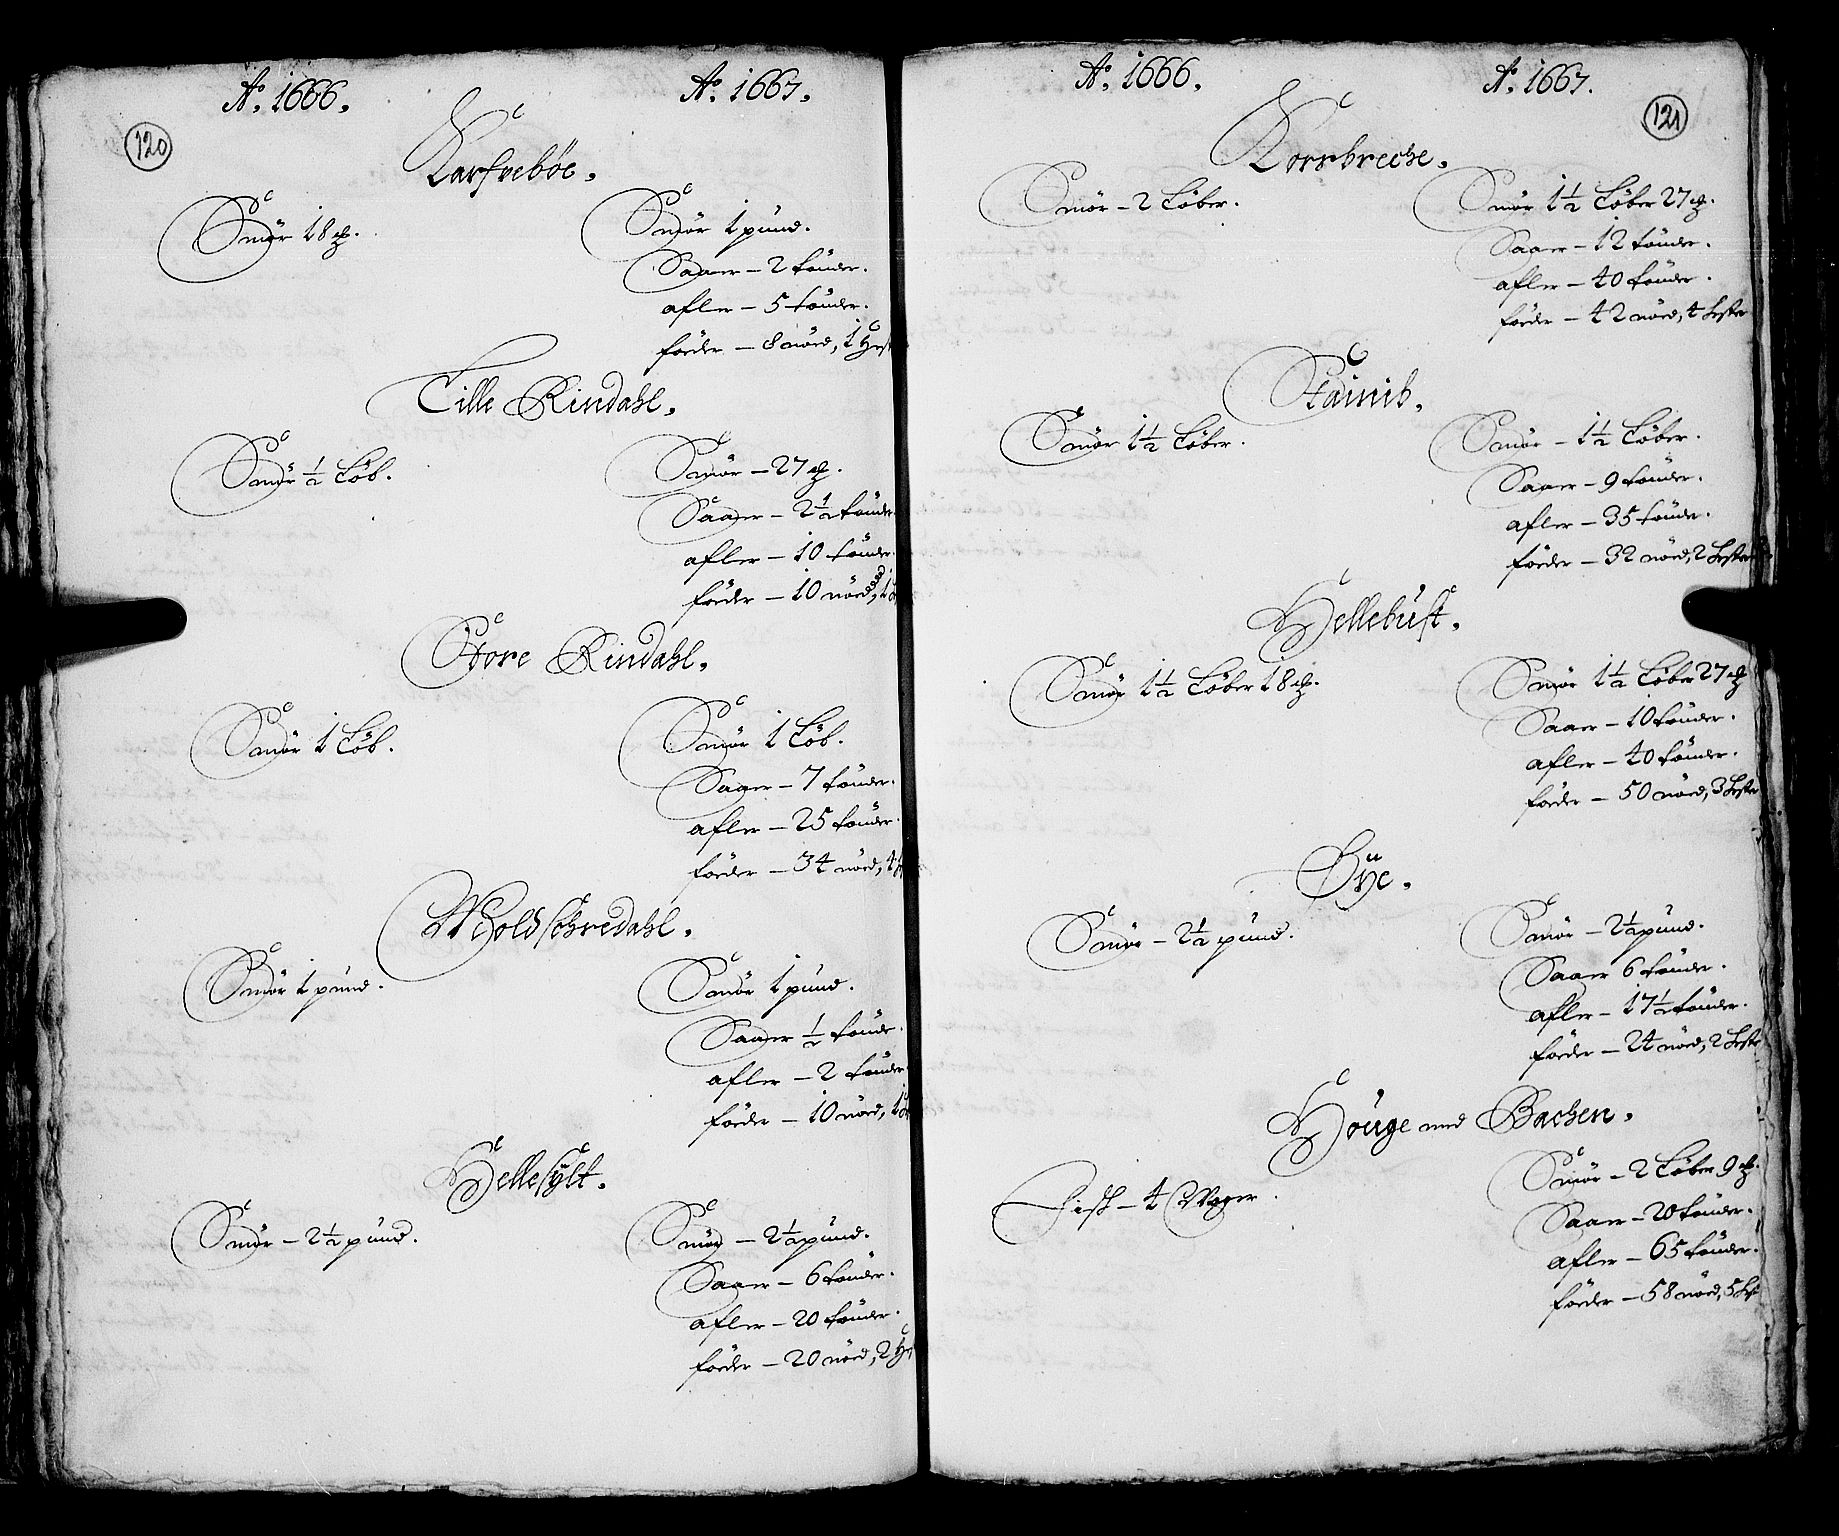 Ao. 1666. Ao. 1667.
120
Karfvebøe.
Smör 18 ℔. Smör 1 pund.
Saaer – 2 tønder.
afler – 5 tønder.
føeder – 8 nöed, 1 Hest
Lille Rindahl.
Smör ½ Løb. Smör – 27 ℔.
Saaer – 2½ tønder
afler – 10 tønder.
føeder – 10 nöed, 1
Store Rindahl.
Smör 1 Løb. Smör 1 Løb.
Saaer – 7 tønder.
afler – 25 tønder.
føeder – 34 nöed, 4
Smör 1 pund. Smör 1 pund.
Saaer ½ tønder.
afler – 2 tønder
føeder – 10 nöed, 1
Hellesylt.
Smör – 2½ pund. Smör – 2½ pund.
Saaer – 6 tønder.
afler – 20 tønder.
føeder – 20 nöed, 2
Ao. 1666. Ao. 1667.
121
Korsbreche.
Smör – 2 Løber. Smör 1½ Løber 27 ℔.
Saaer – 12 tønder.
afler – 40 tønder.
føeder – 42 nöed, 4 Hester
Stainib.
Smör 1½ Løber. Smör – 1½ Løber.
Saaer – 9 tønder.
afler – 35 tønder.
føeder – 32 nöed, 2 Hester
Hellebust.
Smör 1½ Løber 18 ℔. Smör 1½ Løber 27 ℔
Saaer – 10 tønder.
afler – 40 tønder.
føeder – 50 nöed, 3 Hester
Øÿe.
Smör – 2½ pund. Smör – 2½ pund.
Saaer 6 tønder.
afler – 17½ tønder.
føeder – 24 nöed, 2 Heste
Houge med Bachen.
Fisk – 4 Woger. Smör – 2 Løber 9 ℔.
Saaer – 20 tønder.
afler – 65 tønder.
føeder – 58 nöed, 5 Hest